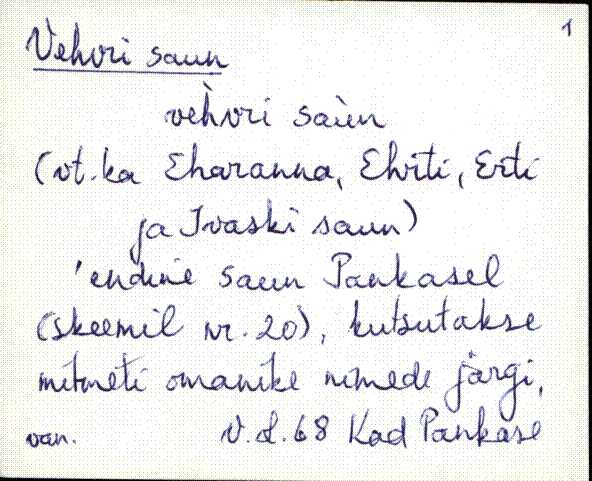 1
Vehvri saun
vèhvri saùn
(vt. ka Eharanna, Ehrti, Erti
ja Ivaski saun)
'endine saun Pankasel
(skeemil nr. 20), kutsutakse
mitmeti omanike nimede järgi,
van. V.L.68 Kad Pankase